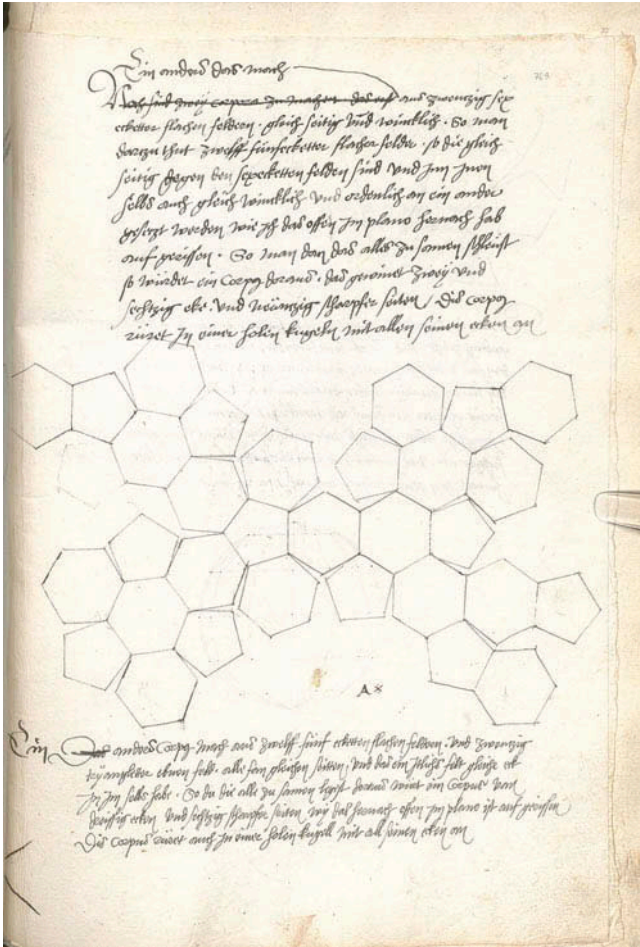 Ein anders das mach
Noch sind zwey corpora zu machen das erst aus zwentzig sex
ecketter flachen feldern · gleich seitig vnd wincklich · So man
dortzu thut zwelff fünfecketter flacher felder · so die gleich
seitig gegen den sexecketten felden sind vnd jnn jnen
selbs auch gleich wincklich vnd ordenlich an ein ander
gesetzt werden wie jch das offen jm plano hernach hab
auf gerissen · So man dan das alles zu samen schleust
so würdet ein corpus doraus · das gewinet zwey vnd
sechtzig eke · vnd neüntzig scharpfer seiten / Dis corpus
rüret jn einer holen kugeln mit allen seinen ecken an
A
Ein anders corpus mach aus zwelff fünf ecketten flachen feldern · vnd zwentzig
tryangleter ebner feld · alle sam gleichen seitten · vnd das ein jtlichs felt gleiche eck
jn jm selbs habe · So du die alle zu samen legst doraus wirt ein corpus von
dreissig ecken vnd sechtzig scharpfer seiten wy das hernach offen jm plano ist auf gerissen
Dis corpus rüret auch jn einer holen kugell mit all seinen ecken an